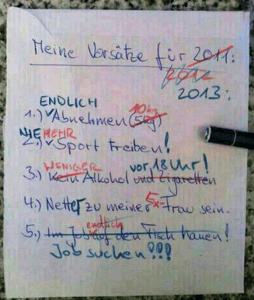 Meine Vorsätze für 2011:
2012
2013:
ENDLICH
10kg
1.) ✓ Abnehmen (5kg)
NIE MEHR
2.) ✓ Sport treiben!
WENIGER vor 18 Uhr!
3.) Kein Alkohol und Zigaretten
4.) Netter zu meiner Ex-Frau sein.
endlich
5.) Im Job auf den Tisch hauen!
Job suchen!!!